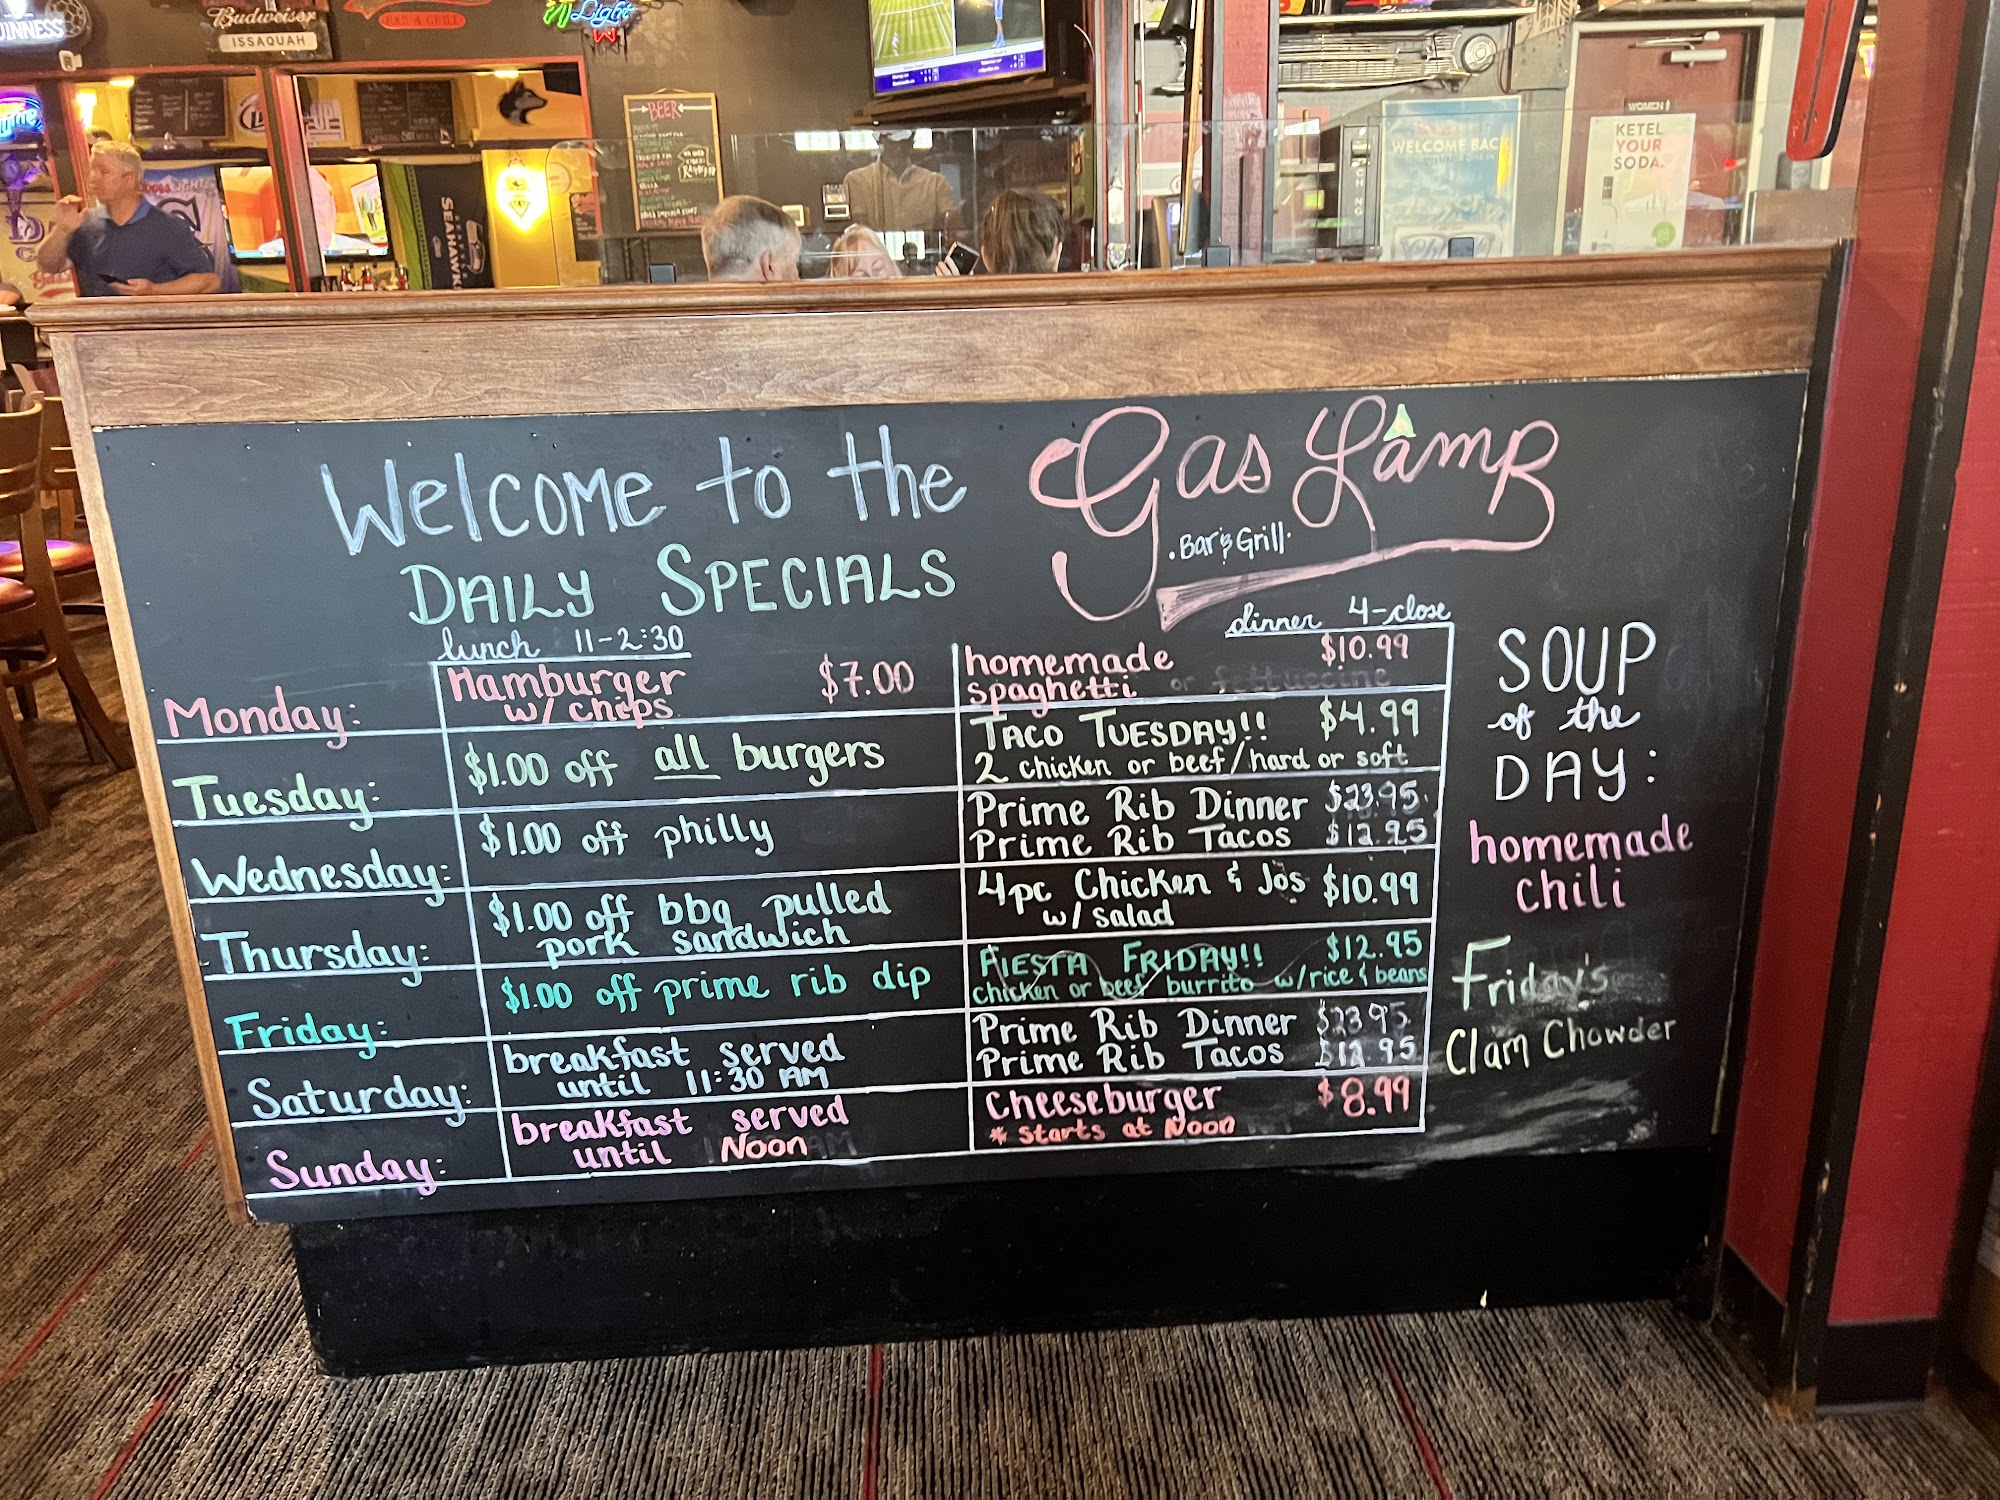 GUINNESS
Budweiser
ISSAQUAH
BAR & GRILL
Light
BEER
SEAHAWKS
WELCOME BACK
WOMEN
KETEL
YOUR
SODA.
Welcome to the Gas Lamp
. Bar & Grill .
DAILY SPECIALS
lunch 11-2:30
dinner 4-close
Monday: Hamburger $7.00 homemade $10.99
w/ chips spaghetti or fettuccine
Tuesday: $1.00 off all burgers TACO TUESDAY!! $4.99
2 chicken or beef/hard or soft
Wednesday: $1.00 off philly Prime Rib Dinner $23.95
Prime Rib Tacos $12.95
Thursday: $1.00 off bbq pulled 4pc Chicken & Jos $10.99
pork sandwich w/ salad
Friday: $1.00 off prime rib dip FIESTA FRIDAY!! $12.95
chicken or beef burrito w/rice & beans
Saturday: breakfast served Prime Rib Dinner $23.95
until 11:30 AM Prime Rib Tacos $12.95
Sunday: breakfast served Cheeseburger $8.99
until Noon * starts at Noon
SOUP
of the
DAY:
homemade
chili
Friday's
Clam Chowder